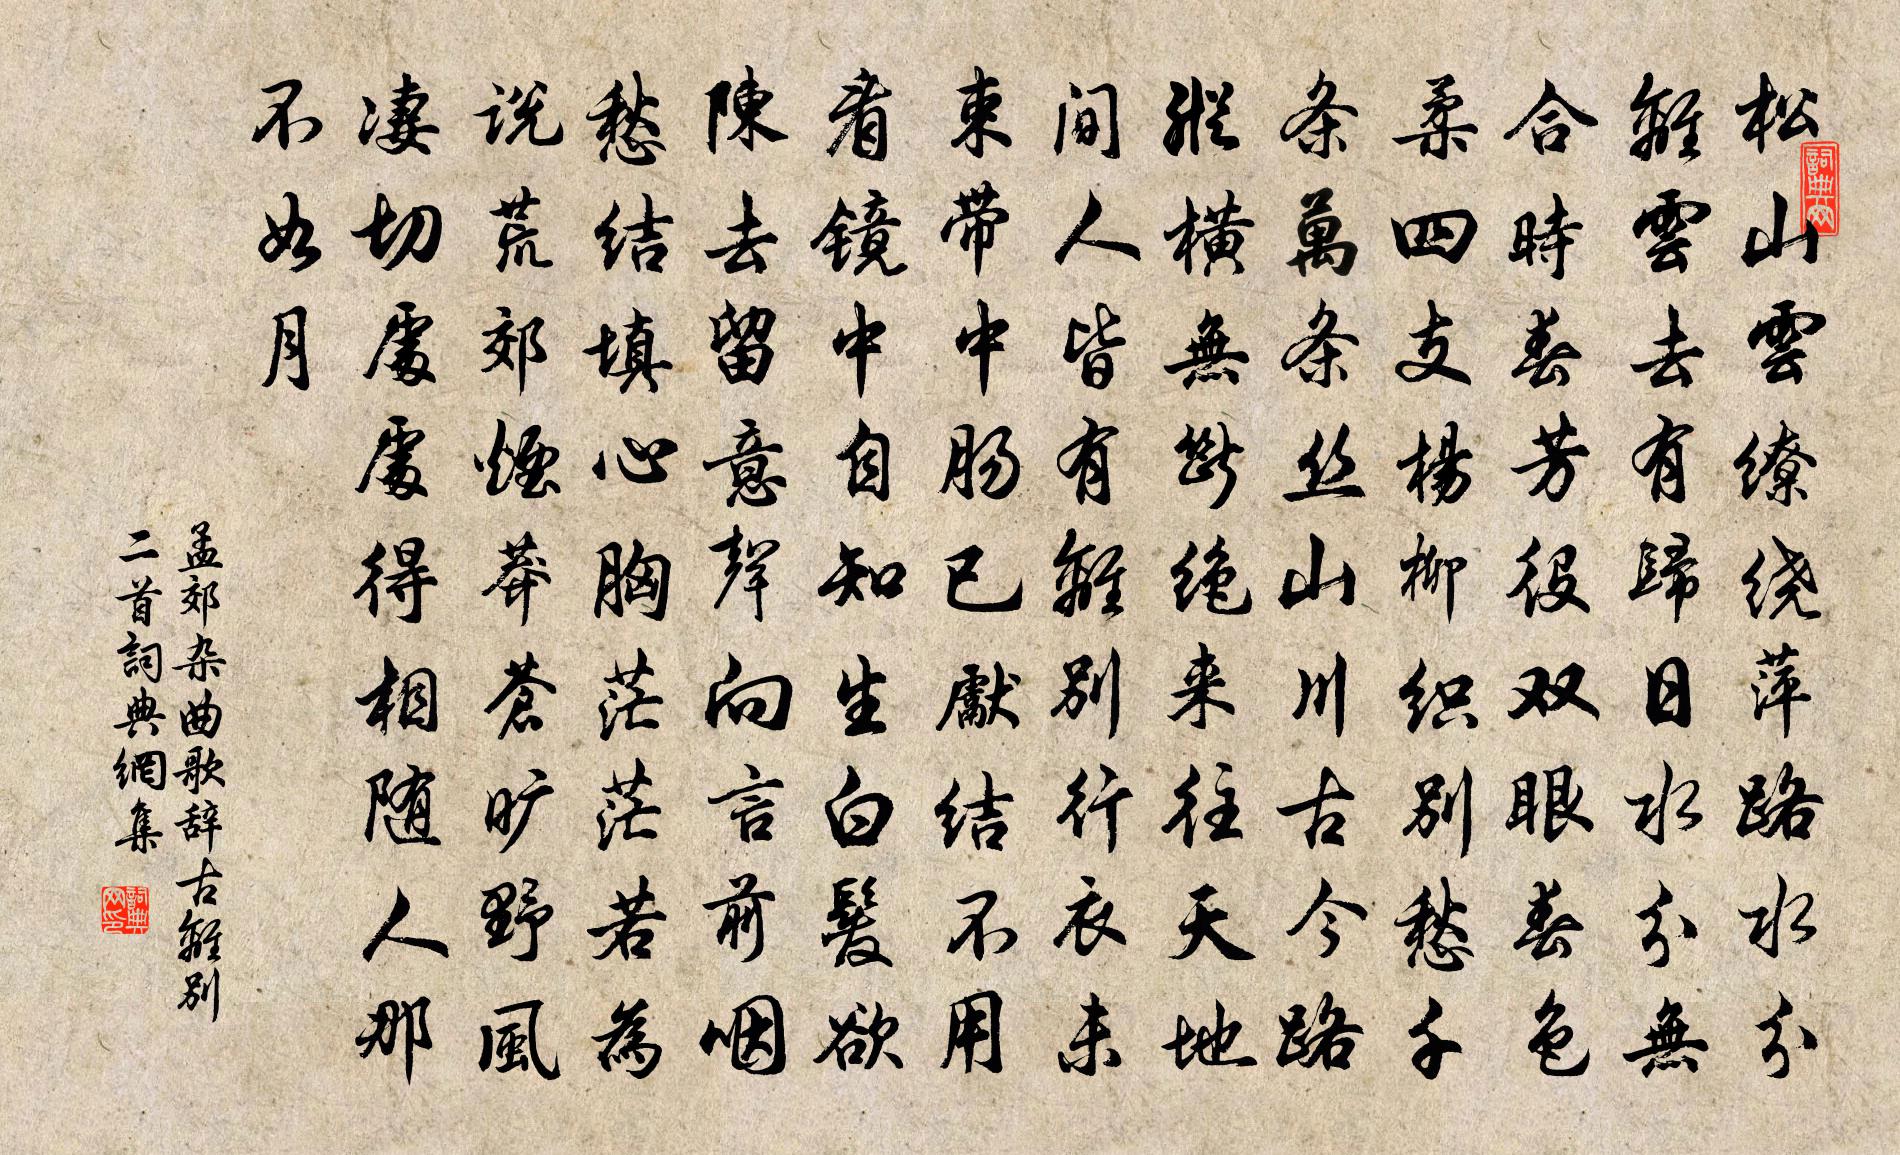 松山雲繚绕萍路水分
離雲去有歸日水分無
合時春芳役双眼春色
柔四支楊柳织别愁千
条萬条丝山川古今路
縱横無断绝来往天地
间人皆有離别行衣未
束带中肠已獻结不用
看镜中自知生白髮欲
陳去留意聲向言前咽
愁结填心胸茫茫若為
说荒郊煙莽蒼旷野風
凄切處處得相随人那
不如月
孟郊杂曲歌辞古離别
二首詞典網集
詞典网
詞典网印